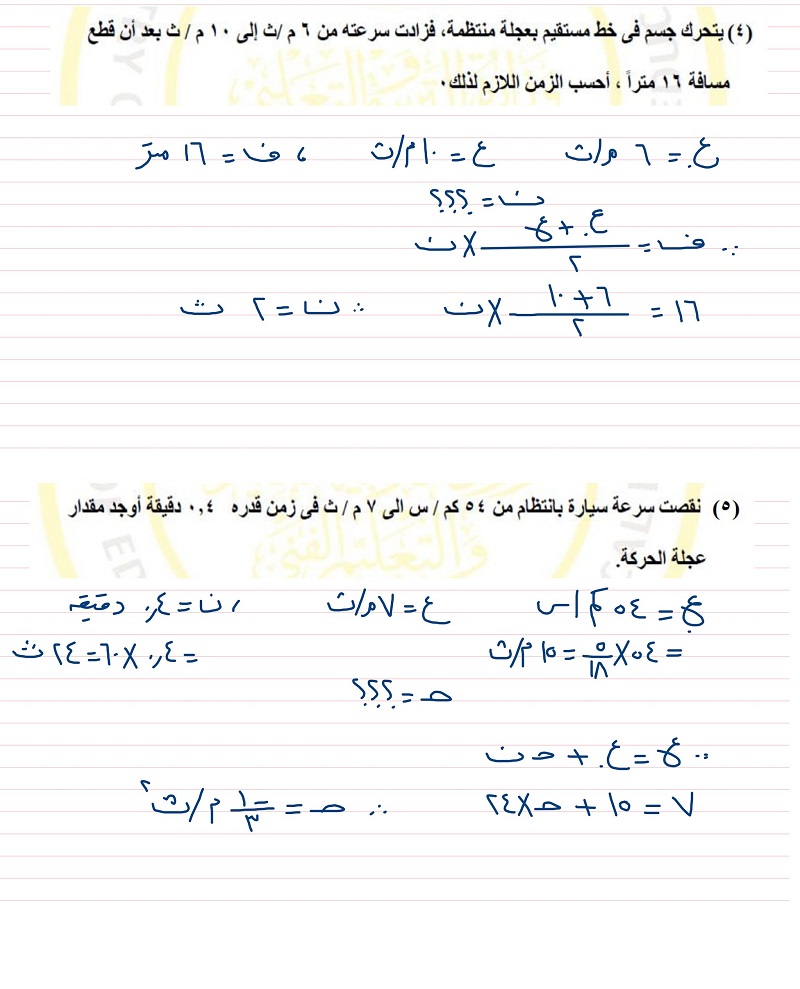 (٤) يتحرك جسم فى خط مستقيم بعجلة منتظمة، فزادت سرعته من ٦ م /ث إلى ١٠ م / ث بعد أن قطع
مسافة ١٦ متراً ، أحسب الزمن اللازم لذلك٠
ع. = ٦ م/ث ع = ١٠ م/ث ، ف = ١٦ متر
ن = ؟؟؟
∴ ف = (ع. + ع)/٢ × ن
١٦ = (٦ + ١٠)/٢ × ن ∴ ن = ٢ ث
(٥) نقصت سرعة سيارة بانتظام من ٥٤ كم / س الى ٧ م / ث فى زمن قدره ٠,٤ دقيقة أوجد مقدار
عجلة الحركة.
ع. = ٥٤ كم/س ع = ٧ م/ث ، ن = ٠,٤ دقيقه
= ٥٤ × ٥/١٨ = ١٥ م/ث = ٠,٤ × ٦٠ = ٢٤ ث
حـ = ؟؟؟
∵ ع = ع. + حـ ن
٧ = ١٥ + حـ × ٢٤ ∴ حـ = -١/٣ م/ث٢